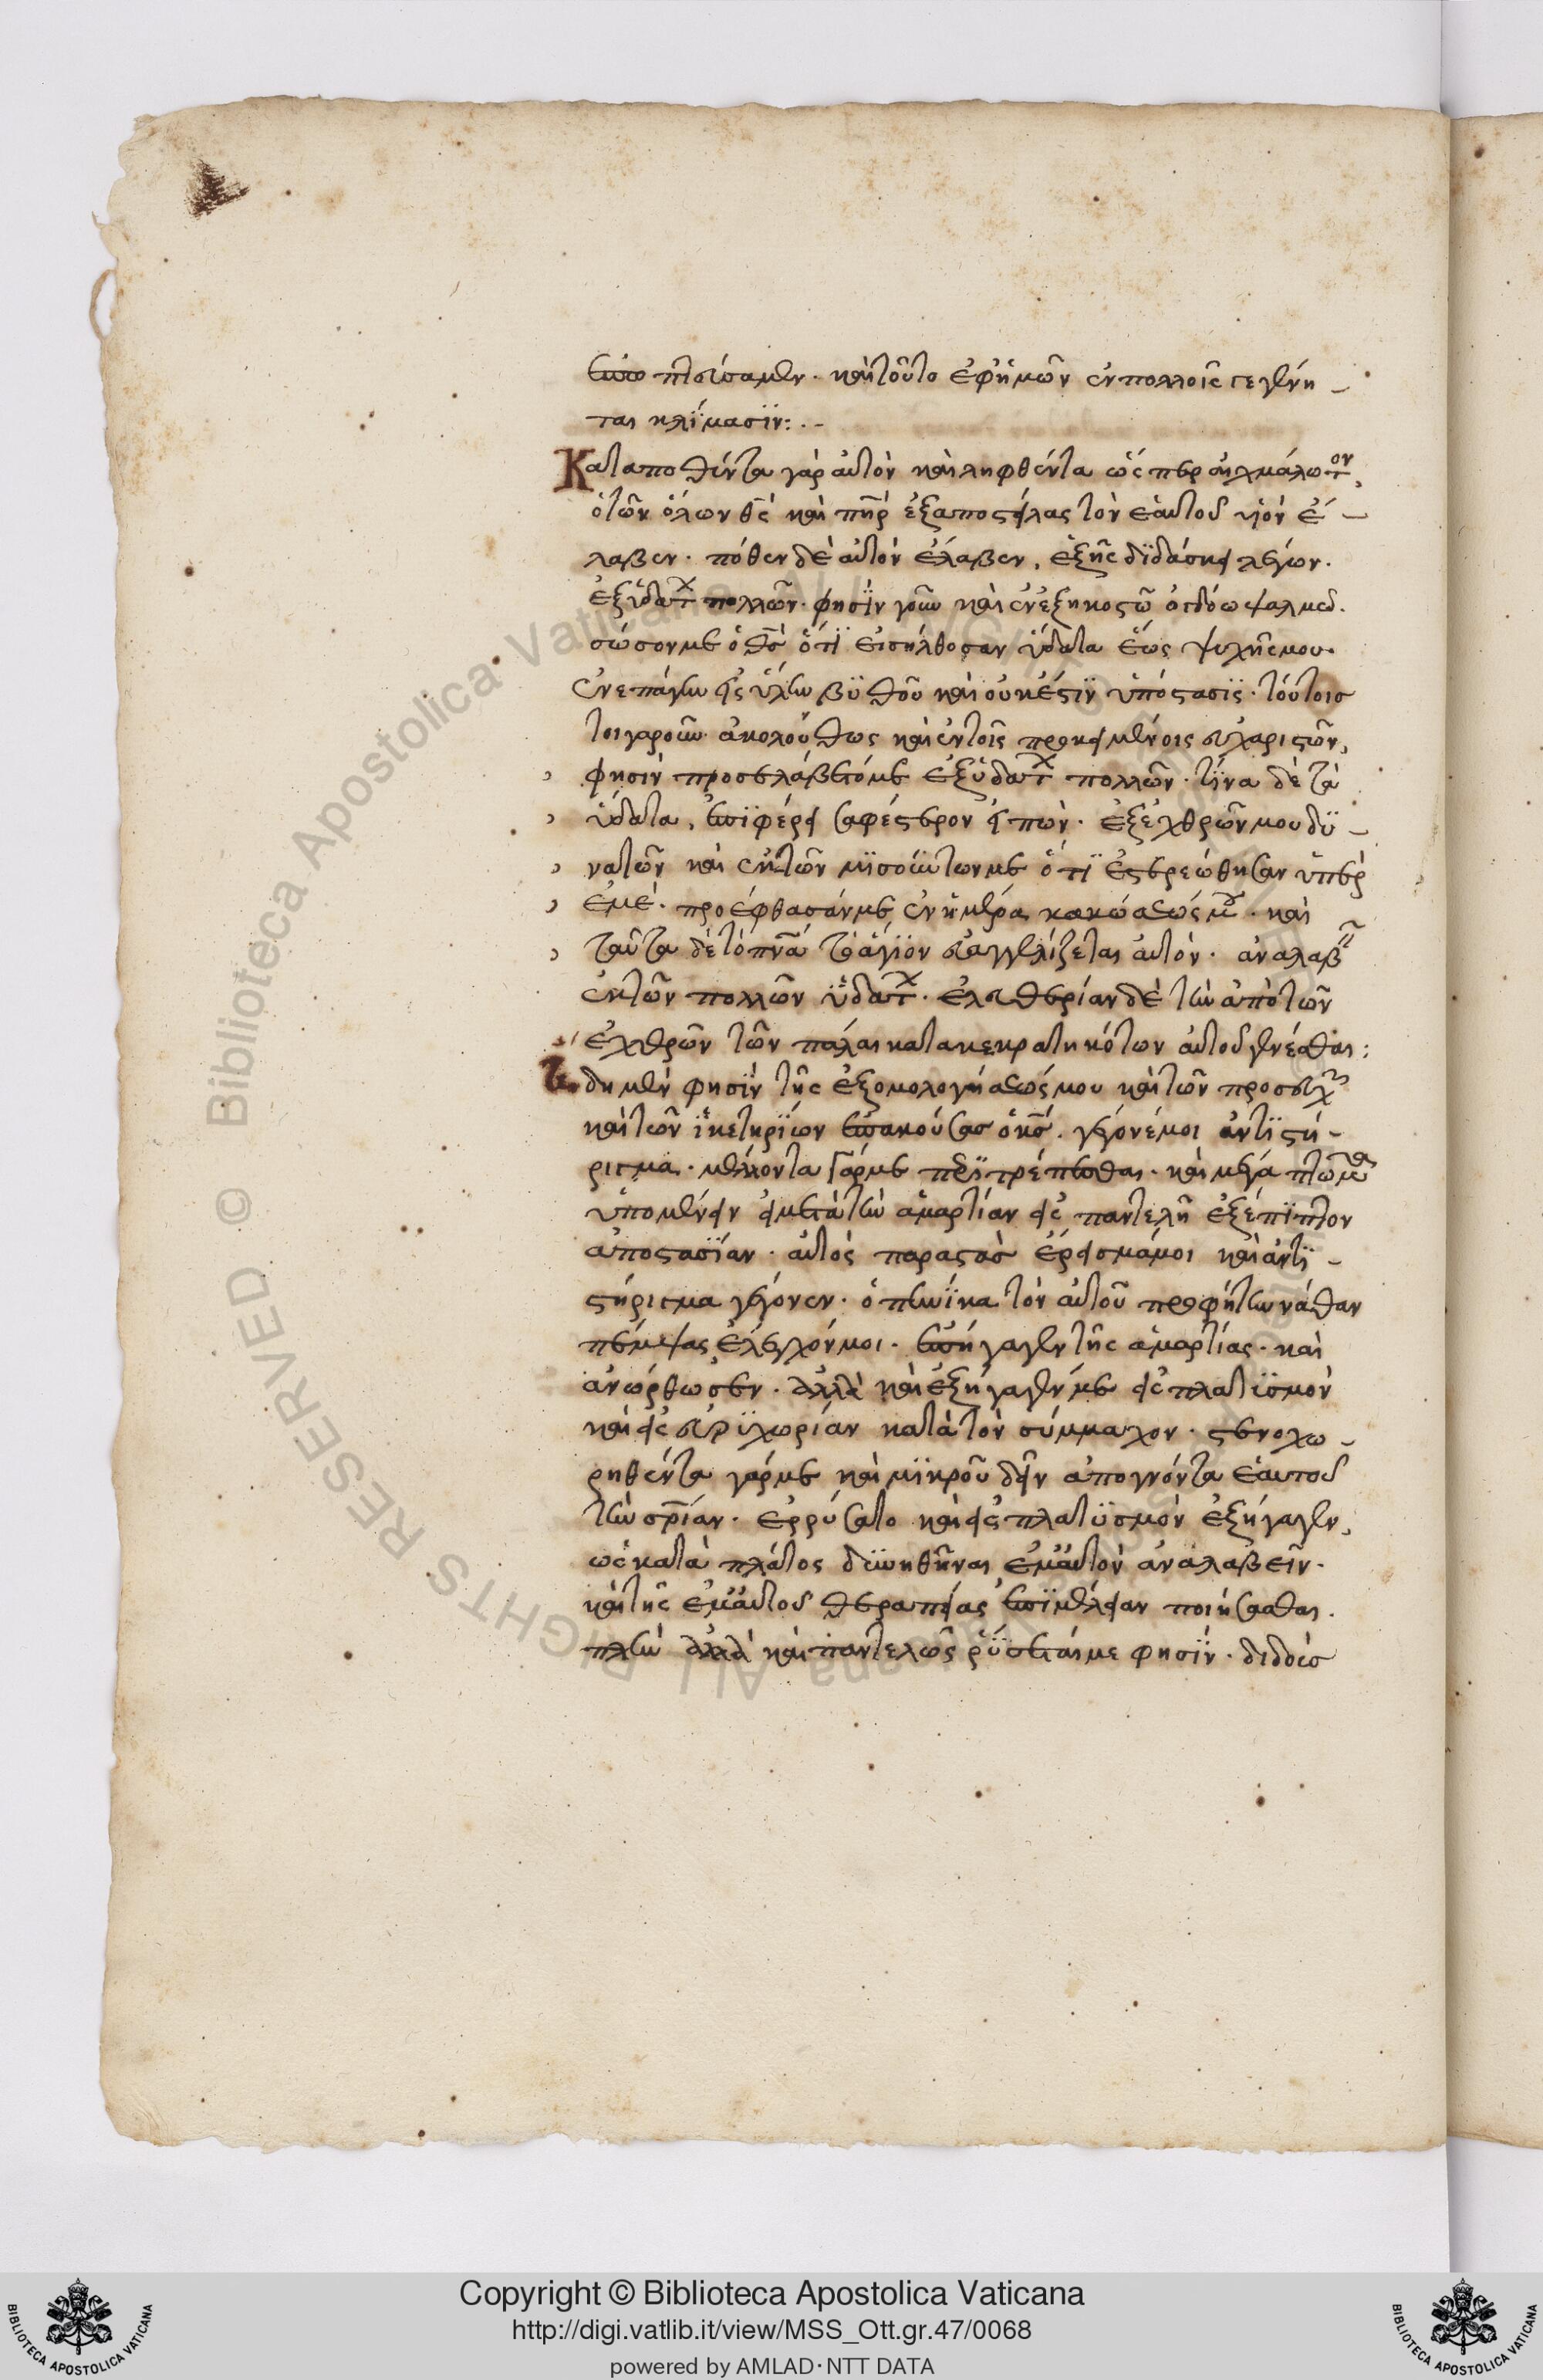 ἐπωπτεύσαμεν· καὶ τοῦτο ἐφ' ἡμῶν ἐν πολλοῖς γεγένη-
ται κλίμασιν:·-
Καταποθέντα γὰρ αὐτὸν καὶ ληφθέντα ὥσπερ αἰχμάλωτον,
ὁ τῶν ὅλων θς καὶ πηρ ἐξαποστείλας τὸν ἑαυτοῦ υἱὸν ἔ-
λαβεν· πόθεν δὲ αὐτὸν ἔλαβεν, ἑξῆς διδάσκει λέγων·
ἐξ ὑδάτων πολλῶν· φησὶν γοῦν καὶ ἐν ἑξηκοστῷ ὀγδόω ψαλμῶ·
σῶσον με ὁ θς ὅτι εἰσήλθοσαν ὕδατα ἕως ψυχῆς μου·
ἐνεπάγην εἰς ὕλην βυθοῦ καὶ οὐκ ἔστιν ὑπόστασις· τούτοις
τοιγαροῦν ἀκολούθως καὶ ἐν τοῖς προκειμένοις εὐχαριστῶν,
φησὶν προσελάβετό με ἐξ ὑδάτων πολλῶν· τίνα δὲ τὰ
ὕδατα, ἐπιφέρει σαφέστερον εἰπών· ἐξ ἐχθρῶν μου δυ-
νατῶν καὶ ἐκ τῶν μισούντων με ὅτι ἐστερεώθησαν ὑπὲρ
ἐμέ· προέφθασάν με ἐν ἡμέρα κακώσεώς μου· καὶ
ταῦτα δὲ τὸ πνα τὸ ἅγιον εὐαγγελίζεται αὐτὸν· ἀναλαβ
ἐκ τῶν πολλῶν ὑδάτων· ἐλευθερίαν δὲ τὴν ἀπὸ τῶν
ἐχθρῶν τῶν πάλαι κατακεκρατηκότων αὐτοῦ γενέσθαι:
δη μὲν φησὶν τῆς ἐξομολογήσεώς μου καὶ τῶν προσευχῶν
καὶ τῶν ἱκετηριῶν ἐπακούσας ὁ κς· γέγονέ μοι ἀντιστή-
ριγμα· μέλλοντα γάρ με περιτρέπεσθαι· καὶ μέγα πτῶμα
ὑπομένειν εἰ μετὰ τὴν ἁμαρτίαν εἰς παντελῆ ἐξέπιπτον
ἀποστασίαν· αὐτὸς παραστὰς ἔρεισμά μοι καὶ ἀντι-
στήριγμα γέγονεν· ὁπηνίκα τὸν αὐτοῦ προφήτην νάθαν
πέμψας ἔλεγχόν μοι· ἐπήγαγεν τῆς ἁμαρτίας· καὶ
ἀνώρθωσεν· ἀλλὰ καὶ ἐξήγαγέν με εἰς πλατυσμὸν
καὶ εἰς εὐρυχωρίαν κατὰ τὸν σύμμαχον· στενοχω-
ρηθέντα γάρ με καὶ μικροῦ δεῖν ἀπογνόντα ἑαυτοῦ
τὴν σρίαν· ἐρρύσατο καὶ εἰς πλατυσμὸν ἐξήγαγεν,
ὡς κατὰ πλάτος δυνηθῆναι ἐμαυτὸν ἀναλαβεῖν·
καὶ τῆς ἐμαυτοῦ θεραπείας ἐπιμέλειαν ποιήσασθαι·
πλὴν ἀλλὰ καὶ παντελῶς ῥύσεταί με φησίν· διδοὺς
Copyright © Biblioteca Apostolica Vaticana
http://digi.vatlib.it/view/MSS_Ott.gr.47/0068
powered by AMLAD·NTT DATA